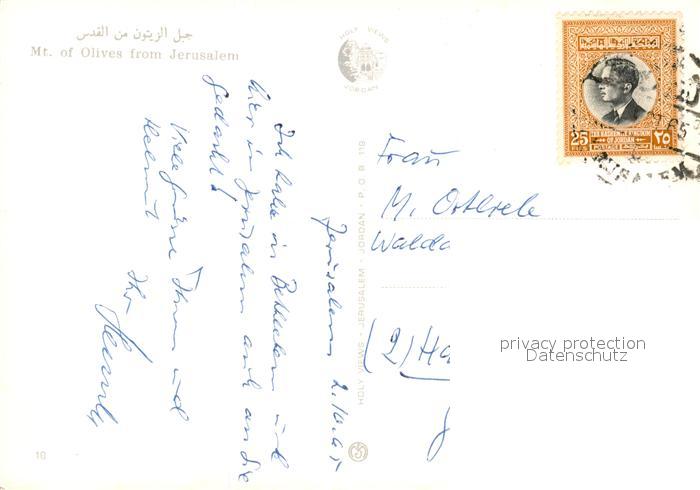 جبل الزيتون من القدس
Mt. of Olives from Jerusalem
HOLY VIEWS
JORDAN
THE HASHEMITE KINGDOM
OF JORDAN
25 POSTAGE ٢٥
JERUSALEM
Jerusalem 2.10.65
Ich habe in Bethlehem und
hier in Jerusalem auch an Sie
gedacht!
Viele Grüße Ihnen und
Helmut
Ihr
HOLY VIEWS - JERUSALEM - JORDAN - P. O. B. 119
Frau
M.
Walde
(2) Ha
privacy protection
Datenschutz
10